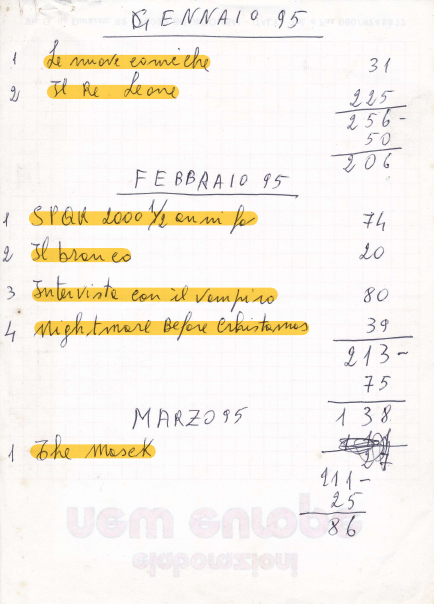 GENNAIO 95
1 Le nuove comiche 31
2 Il Re Leone 225
256-
50
206
FEBBRAIO 95
1 SPQR 2000 1/2 anni fa 74
2 Il branco 20
3 Intervista con il vampiro 80
4 Nightmare Before Christamas 39
213-
75
138
MARZO 95
1 The Masck
27
111-
25
86